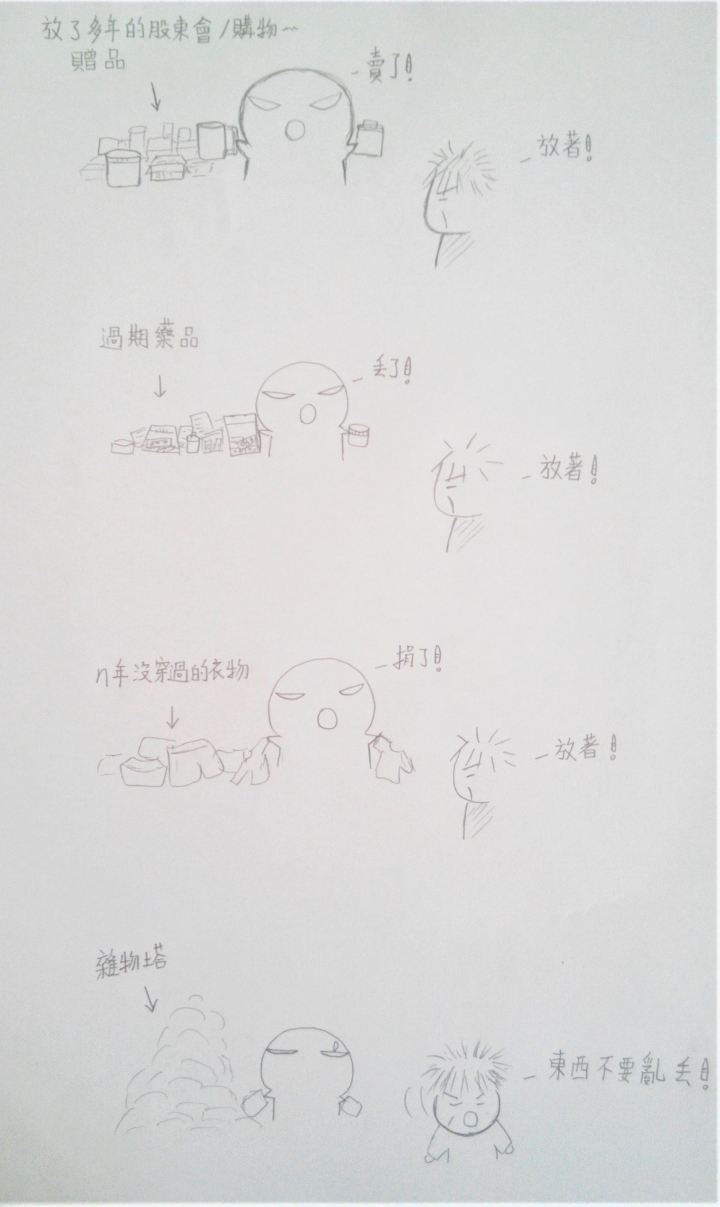 放了多年的股東會/購物~
贈品
賣了!
放著!
過期藥品
丟了!
放著!
n年沒穿過的衣物
捐了!
放著!
雜物塔
東西不要亂丟!